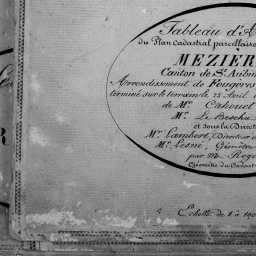 Tableau d'A
du Plan cadastral parcellaire
MEZIER
Canton de St. Aubin
Arrondissement de Fougeres
terminé sur le terrain le 15 Avril
de Mr. Cahouet
Mr. Le Beschu
et sous la Direct
Mr. Lambert, Directeur
Mr. Lesné, Géomètre
par Mr. Roge
Géomètre du Cadast
Echelle de 1 à 100
R